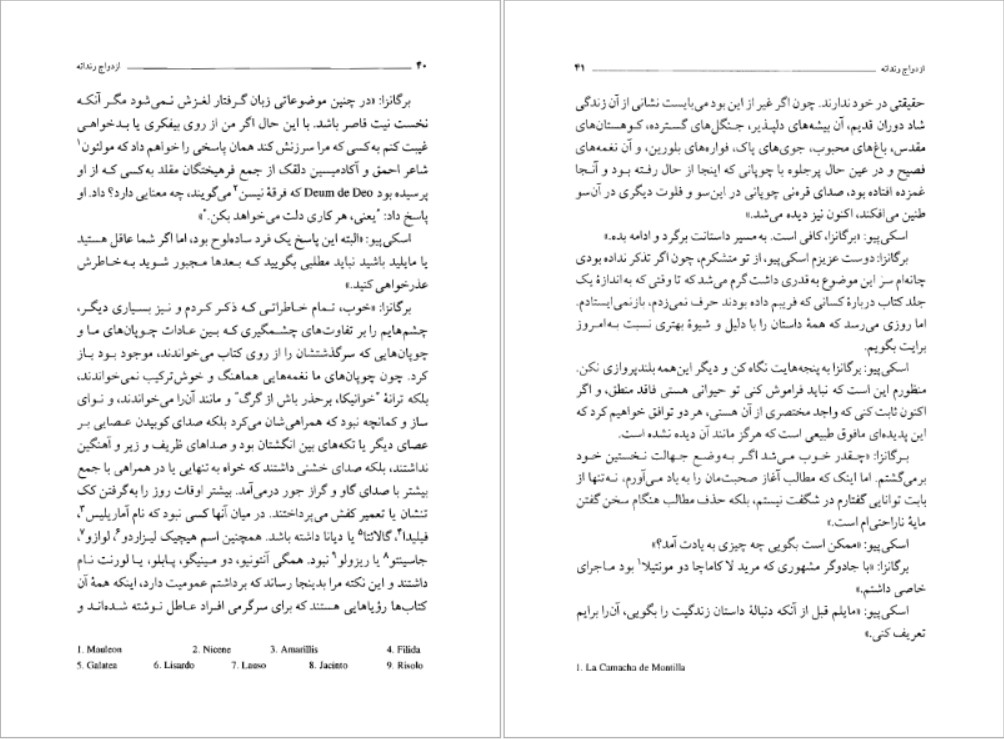 ۴۰ ازدواج رندانه
برگانزا: «در چنین موضوعاتی زبان گرفتار لغزش نمی‌شود مگر آنکه
نخست نیت قاصر باشد. با این حال اگر من از روی بیفکری یا بدخواهی
غیبت کنم به‌کسی که مرا سرزنش کند همان پاسخی را خواهم داد که مولئون۱
شاعر احمق و آکادمیسین دلقک از جمع فرهیختگان مقلد به‌کسی که از او
پرسیده بود Deum de Deo که فرقهٔ نیسن۲ می‌گویند، چه معنایی دارد؟ داد. او
پاسخ داد: "یعنی، هر کاری دلت می‌خواهد بکن."»
اسکی‌پیو: «البته این پاسخ یک فرد ساده‌لوح بود، اما اگر شما عاقل هستید
یا مایلید باشید نباید مطلبی بگویید که بعدها مجبور شوید به‌خاطرش
عذرخواهی کنید.»
برگانزا: «خوب، تمام خاطراتی که ذکر کردم و نیز بسیاری دیگر،
چشم‌هایم را بر تفاوت‌های چشمگیری که بین عادات چوپان‌های ما و
چوپان‌هایی که سرگذشتشان را از روی کتاب می‌خواندند، موجود بود باز
کرد. چون چوپان‌های ما نغمه‌هایی هماهنگ و خوش‌ترکیب نمی‌خواندند،
بلکه ترانهٔ "خوانیکا، برحذر باش از گرگ" و مانند آن‌را می‌خواندند، و نوای
ساز و کمانچه نبود که همراهی‌شان می‌کرد بلکه صدای کوبیدن عصایی بر
عصای دیگر یا تکه‌های بین انگشتان بود و صداهای ظریف و زیر و آهنگین
نداشتند، بلکه صدای خشنی داشتند که خواه به تنهایی یا در همراهی با جمع
بیشتر با صدای گاو و گراز جور درمی‌آمد. بیشتر اوقات روز را به‌گرفتن کک
تنشان یا تعمیر کفش می‌پرداختند. در میان آنها کسی نبود که نام آماریلیس۳،
فیلیدا۴، گالاتئا۵ یا دیانا داشته باشد. همچنین اسم هیچیک لیزاردو۶، لوازو۷،
جاسینتو۸ یا ریزولو۹ نبود. همگی آنتونیو، دو مینیگو، پابلو، یا لورنت نام
داشتند و این نکته مرا بدینجا رساند که برداشتم عمومیت دارد، اینکه همهٔ آن
کتاب‌ها رؤیاهایی هستند که برای سرگرمی افراد عاطل نوشته شده‌اند و
1. Mauleon 2. Nicene 3. Amarillis 4. Filida
5. Galatea 6. Lisardo 7. Lauso 8. Jacinto 9. Risolo
ازدواج رندانه ۴۱
حقیقتی در خود ندارند. چون اگر غیر از این بود می‌بایست نشانی از آن زندگی
شاد دوران قدیم، آن بیشه‌های دلپذیر، جنگل‌های گسترده، کوهستان‌های
مقدس، باغ‌های محبوب، جوی‌های پاک، فواره‌های بلورین، و آن نغمه‌های
فصیح و در عین حال پرجلوه با چوپانی که اینجا از حال رفته بود و آنجا
غمزده افتاده بود، صدای قره‌نی چوپانی در این‌سو و فلوت دیگری در آن‌سو
طنین می‌افکند، اکنون نیز دیده می‌شد.»
اسکی‌پیو: «برگانزا، کافی است. به مسیر داستانت برگرد و ادامه بده.»
برگانزا: دوست عزیزم اسکی‌پیو، از تو متشکرم، چون اگر تذکر نداده بودی
چانه‌ام سر این موضوع به‌قدری داشت گرم می‌شد که تا وقتی که به‌اندازهٔ یک
جلد کتاب دربارهٔ کسانی که فریبم داده بودند حرف نمی‌زدم، بازنمی‌ایستادم.
اما روزی می‌رسد که همهٔ داستان را با دلیل و شیوهٔ بهتری نسبت به‌امروز
برایت بگویم.
اسکی‌پیو: برگانزا به پنجه‌هایت نگاه کن و دیگر این‌همه بلندپروازی نکن.
منظورم این است که نباید فراموش کنی تو حیوانی هستی فاقد منطق، و اگر
اکنون ثابت کنی که واجد مختصری از آن هستی، هر دو توافق خواهیم کرد که
این پدیده‌ای مافوق طبیعی است که هرگز مانند آن دیده نشده است.
برگانزا: «چقدر خوب می‌شد اگر به‌وضع جهالت نخستین خود
برمی‌گشتم. اما اینک که مطالب آغاز صحبت‌مان را به یاد می‌آورم، نه‌تنها از
بابت توانایی گفتارم در شگفت نیستم، بلکه حذف مطالب هنگام سخن گفتن
مایهٔ ناراحتی‌ام است.»
اسکی‌پیو: «ممکن است بگویی چه چیزی به یادت آمد؟»
برگانزا: «با جادوگر مشهوری که مرید لا کاماچا دو مونتیلا۱ بود ماجرای
خاصی داشتم.»
اسکی‌پیو: «مایلم قبل از آنکه دنبالهٔ داستان زندگیت را بگویی، آن‌را برایم
تعریف کنی.»
1. La Camacha de Montilla